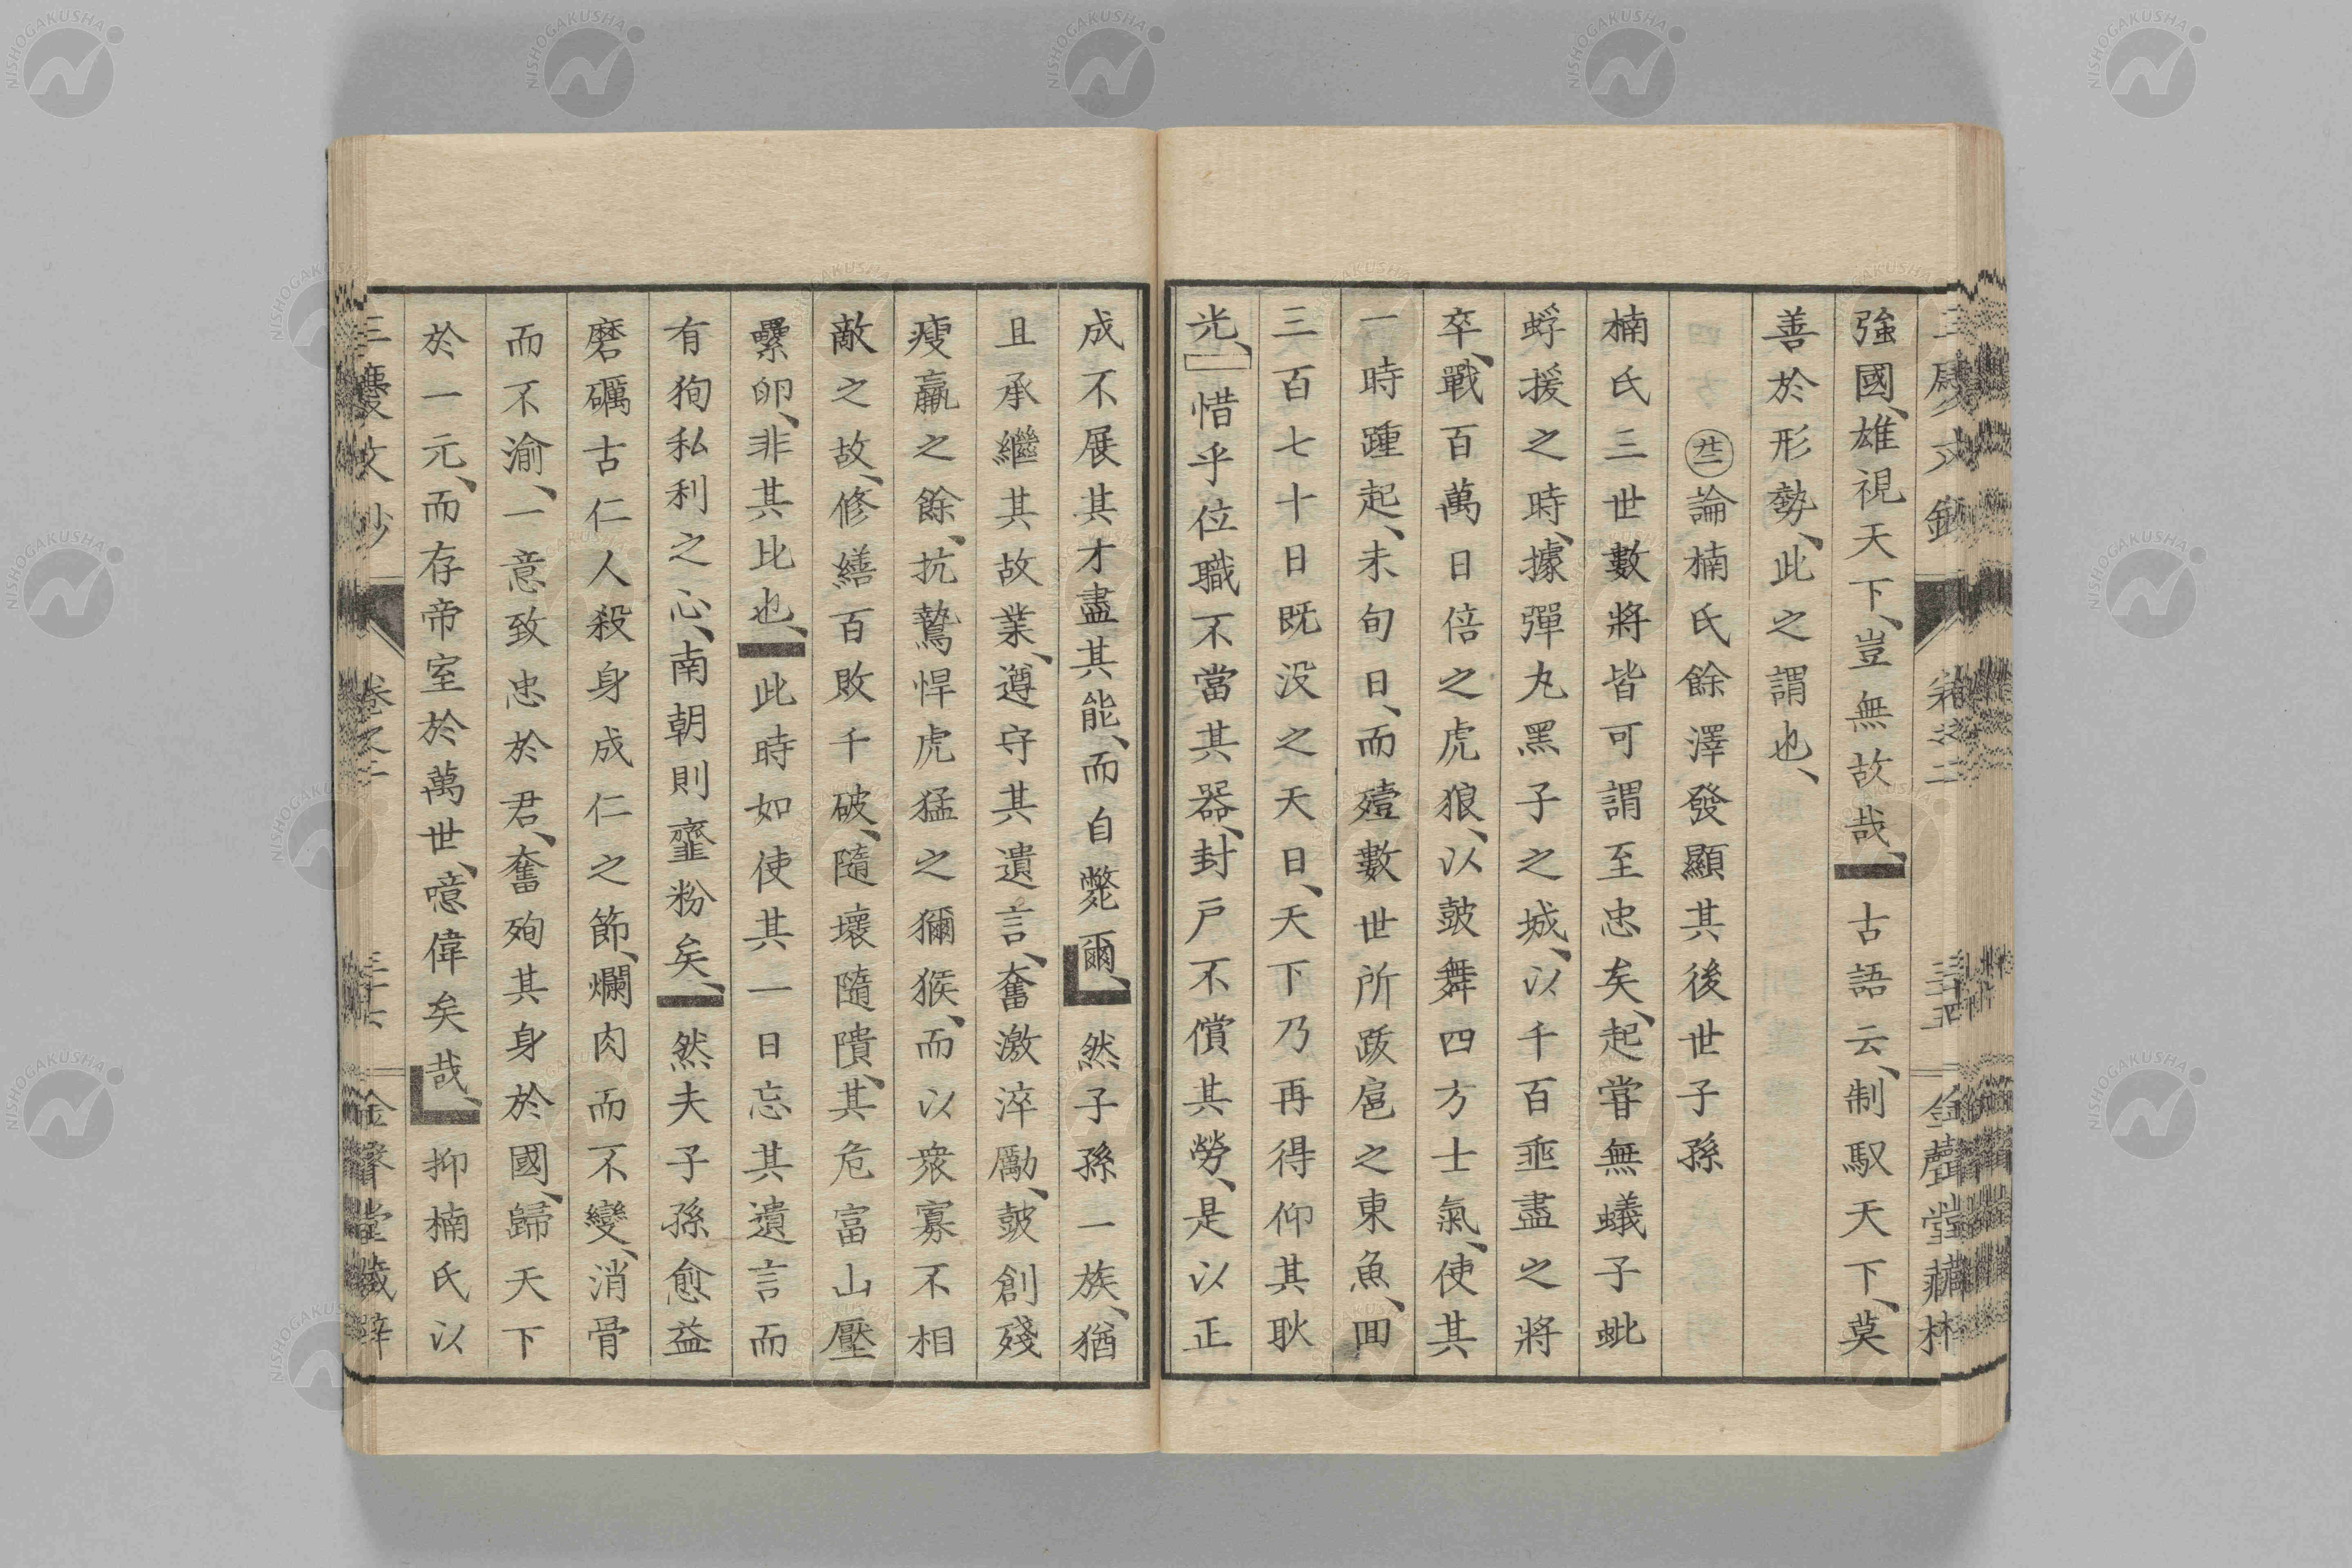 強國、雄視天下、豈無故哉、古語云、制馭天下、莫
善於形勢、此之謂也、
㊁論楠氏餘澤發顯其後世子孫
楠氏三世數將皆可謂至忠矣、起甞無蟻子蚍
蜉援之時、據彈丸黑子之城、以千百乖盡之將
卒、戰百萬日倍之虎狼、以皷舞四方士氣、使其
一時踵起、未旬日、而殪數世所跋扈之東魚、回
三百七十日既没之天日、天下乃再得仰其耿
光、惜乎位職不當其器、封戶不償其勞、是以正
成不展其才盡其能、而自斃爾、然子孫一族、猶
且承繼其故業、遵守其遺言、奮激淬勵、皷創殘
瘦羸之餘、抗鷙悍虎猛之獼猴、而以衆寡不相
敵之故、修繕百敗千破、隨壞隨隤、其危富山壓
纍卵、非其比也、此時如使其一日忘其遺言而
有狥私利之心、南朝則齏粉矣、然夫子孫愈益
磨礪古仁人殺身成仁之節、爛肉而不變、消骨
而不渝、一意致忠於君、奮殉其身於國、歸天下
於一元、而存帝室於萬世、噫偉矣哉、抑楠氏以